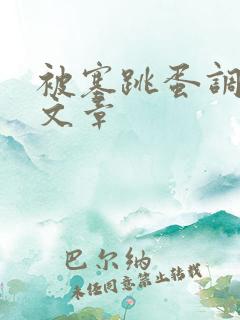 被塞跳蛋調
文章
巴尔纳
未经同意禁止转载